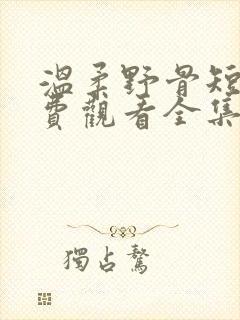 温柔野骨短
费觀看全集
獨占鰲